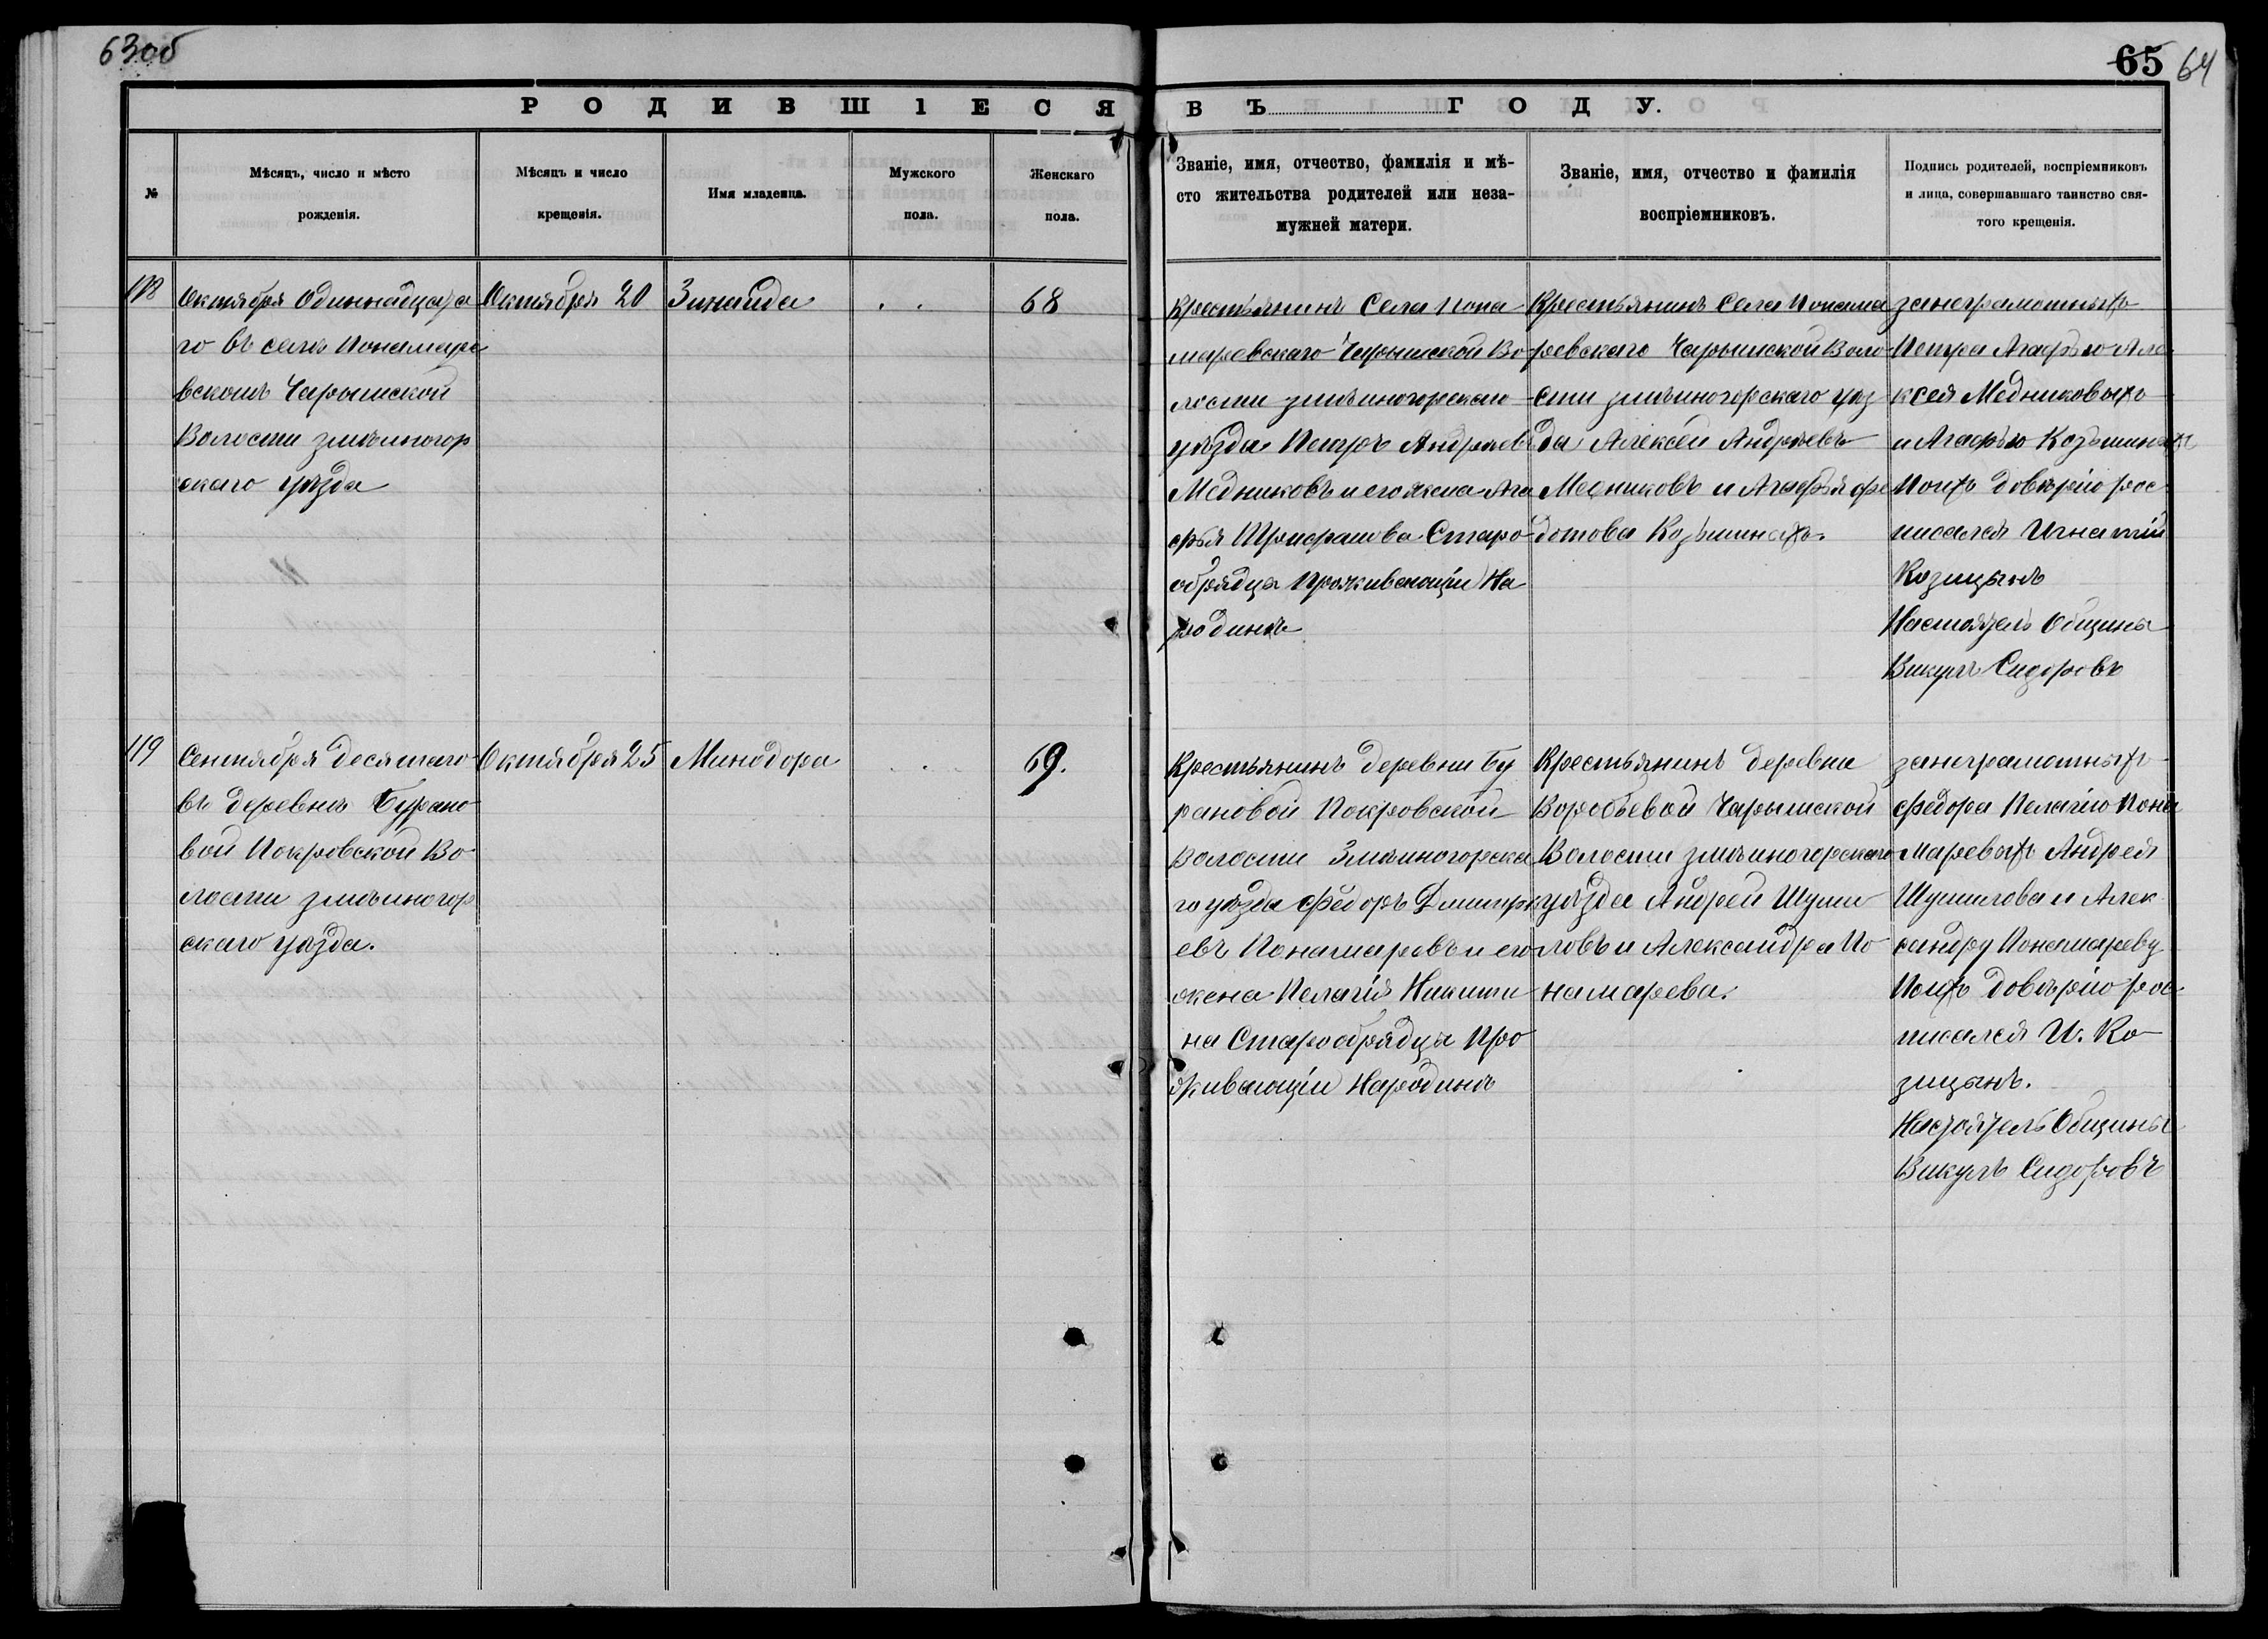 63об
65 64
РОДИВШІЕСЯ ВЪ ГОДУ.
№
Мѣсяцъ, число и мѣсто
рожденія.
Мѣсяцъ и число
крещенія.
Имя младенца.
Мужского
пола.
Женскаго
пола.
Званіе, имя, отчество, фамилія и мѣ-
сто жительства родителей или неза-
мужней матери.
Званіе, имя, отчество и фамилія
воспріемниковъ.
Подпись родителей, воспріемниковъ
и лица, совершавшаго таинство свя-
того крещенія.
118
Октября Одиннадцата
го въ селѣ Понамаре
вскомъ Чарышской
Волости змѣиногор
скаго уѣзда
Октября 20
Зинаида
. .
68
Крестьянинъ Села Пона
маревскаго Чарышской Во
лости змѣиногорскаго
уѣзда Петръ Андреев
Медниковъ и его жена Ага
фья Трифанова Старо
обрядцы Проживающіи На
родинѣ
Крестьянинъ Села Понама
ревскаго Чарышской Воло
сти змѣиногорскаго уѣз
да Алексей Андреевъ
Медниковъ и Агафья фе
дотова Козьминахъ.
занеграмотныхъ
Петра Агафью Але
ксея Медниковыхъ
и Агафью Козьминахъ
Поихъ довѣрію рос
писался Игнатій
Козицынъ
Настоятель Общины
Викулъ Сидоровъ
119
Сентября десятаго
въ деревнѣ Бурано
вой Покровской Во
лости змѣиногор
скаго уѣзда.
Октября 25
Минодора
. .
69.
Крестьянинъ деревни Бу
рановой Покровской
Волости Змѣиногорска
го уѣзда Федоръ Дмитрі
евъ Понамаревъ и его
жена Пелагія Никити
на Старообрядцы Про
живающіи Народинѣ
Крестьянинъ деревни
Воробьевой Чарышской
Волости змѣиногорскаго
уѣзда Андрей Шуми
ловъ и Александра По
намарева.
занеграмотныхъ
федора Пелагію Пона
маревыхъ Андрея
Шумилова и Алек
сандру Понамареву
Поихъ довѣрію рос
писался И. Ко
зицынъ.
Настоятель Общины
Викулъ Сидоровъ